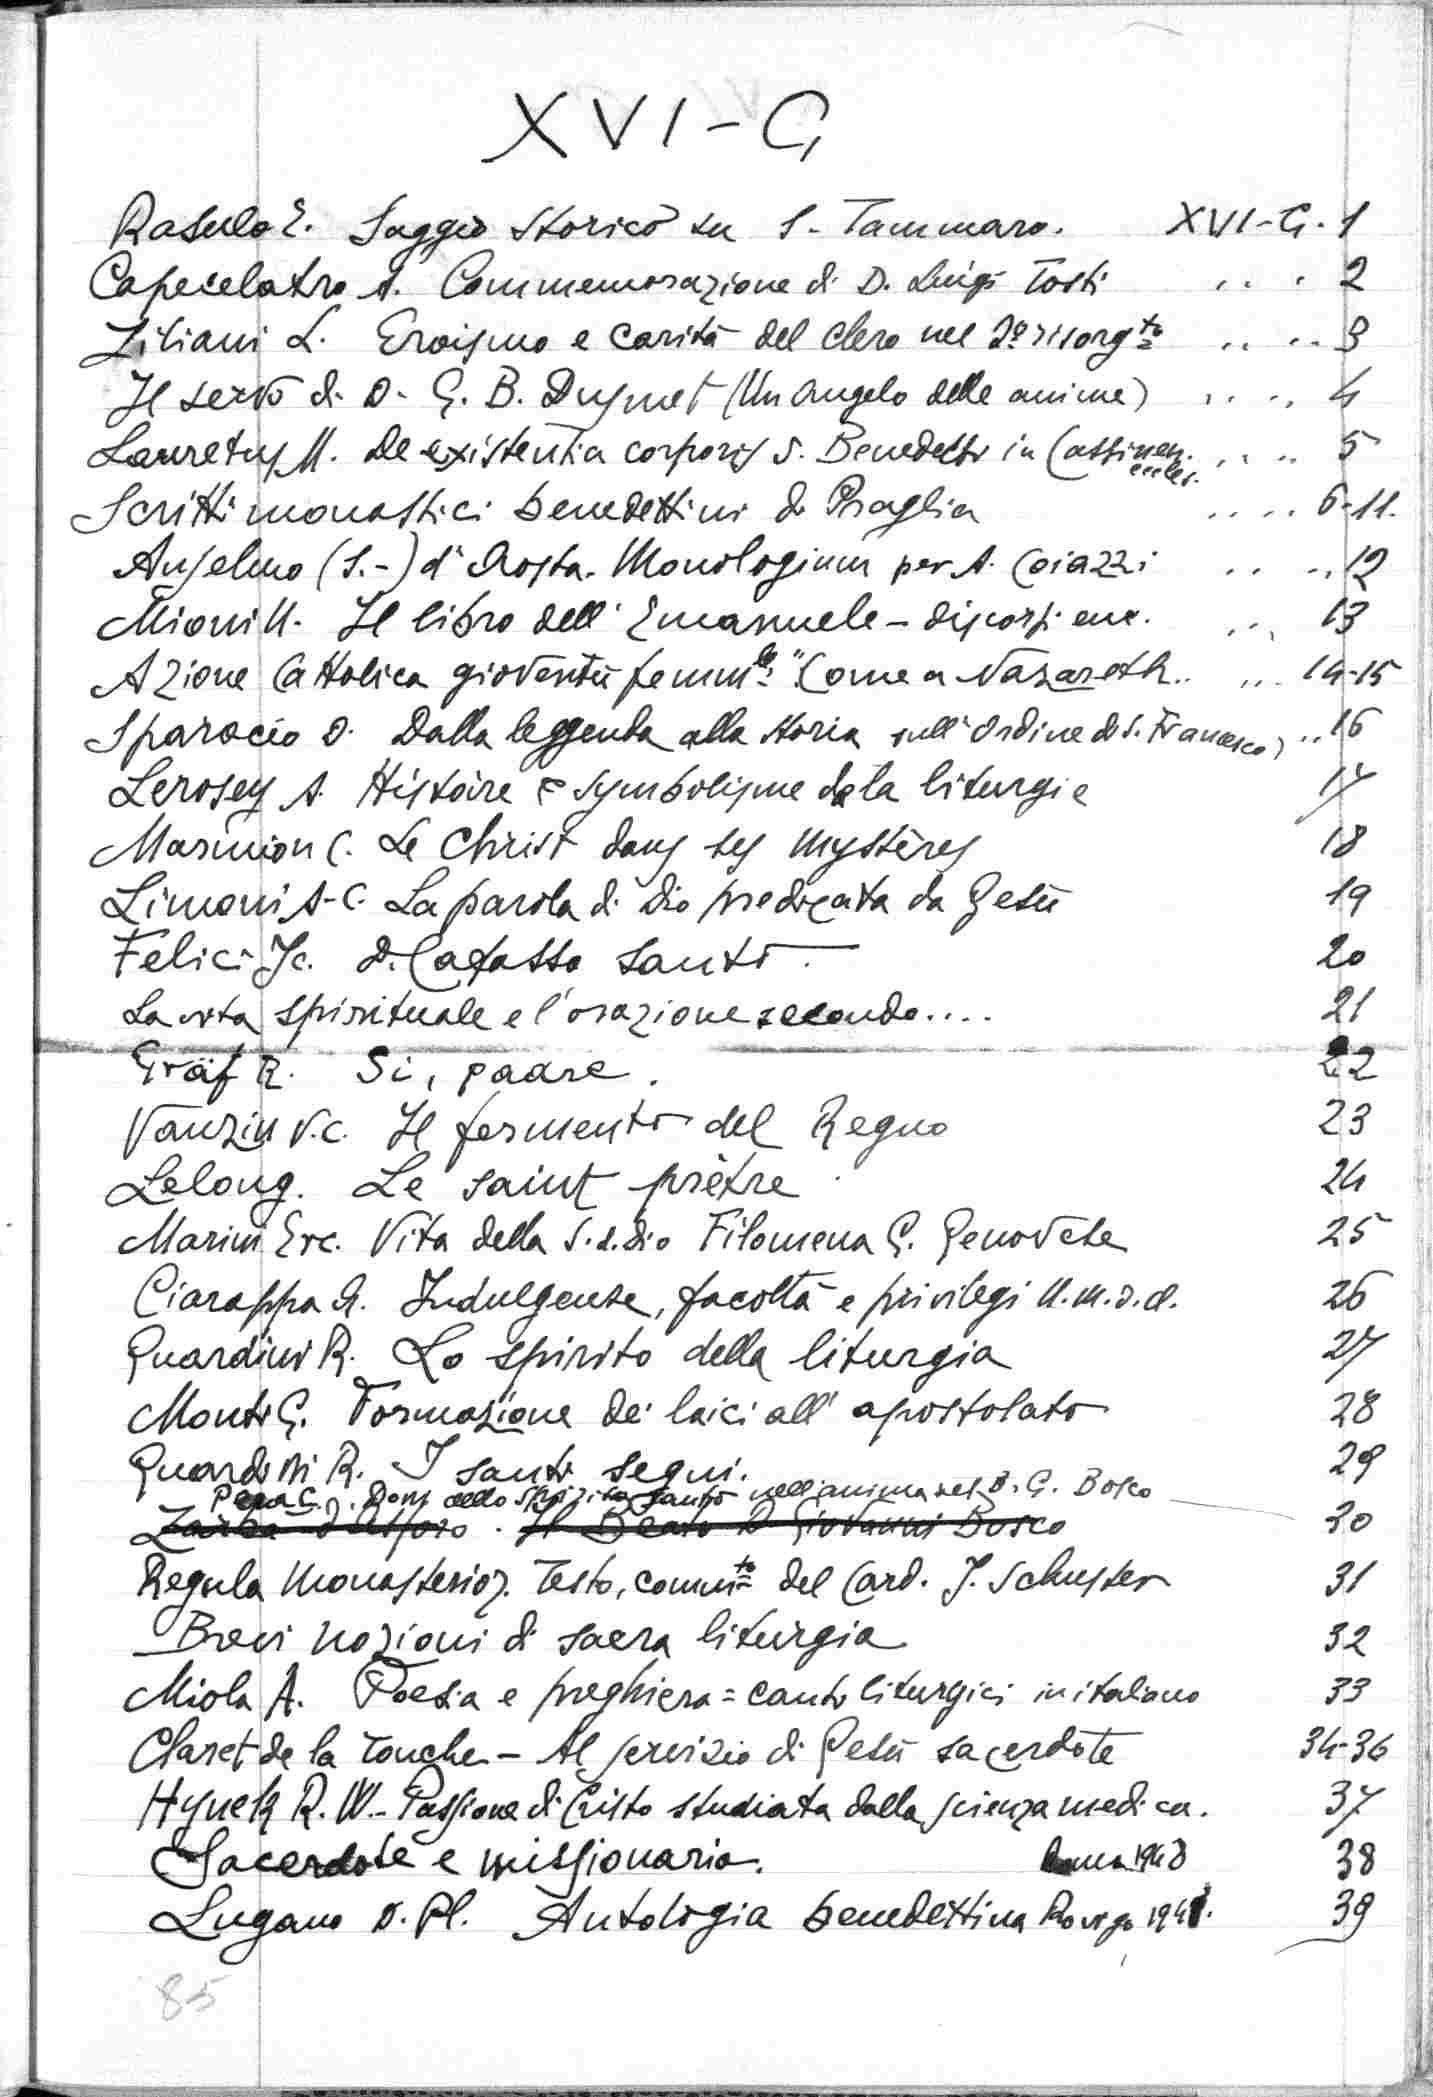 XVI-G
Rasulo E. Saggio storico su S. Tammaro. XVI-G. 1
Capecelatro A. Commemorazione di D. Luigi Tosti .. . 2
Ziliani L. Eroismo e carità del clero nel 2º risorg.to .. .. 3
Il servo di D. G. B. Dusmet (Un Angelo delle anime) .. .. 4
Lauretus M. De existentia corporis S. Benedetti in Cassinen. eccles. .. .. 5
Scritti monastici benedettini di Praglia .. .. 6-11.
Anselmo (S.-) d'Aosta. Monologium per A. Cojazzi .. .. 12
Mioni U. Il libro dell'Emanuele - discorsi euc. .. 13
Azione Cattolica gioventù femm.le "Come a Nazareth.. .. 14-15
Sparacio D. Dalla leggenda alla storia sull'Ordine di S. Francesco) .. 16
Lerosey A. Histoire & symbolisme de la liturgie 17
Marmion C. Le Christ dans ses mystères 18
Limoni A-C. La parola di Dio predicata da Gesù 19
Felici Ic. D. Cafasso santo. 20
La vita spirituale e l'orazione secondo.... 21
Gräf R. Si, padre. 22
Vanzin V.C. Il fermento del Regno 23
Lelong. Le saint prêtre 24
Marini Erc. Vita della S.d.Dio Filomena G. Genovese 25
Ciarappa G. Indulgense, facoltà e privilegi U.M.D.C. 26
Guardini R. Lo spirito della liturgia 27
Monti G. Formazione dei laici all'apostolato 28
Guardini R. I santi segni. 29
Pera C. I Doni dello Spirito Santo nell'anima del B. G. Bosco
Il Beato D. Giovanni Bosco 30
Regula Monasterior. Testo, comm.to del Card. I. Schuster 31
Brevi nozioni di sacra liturgia 32
Miola A. Poesia e preghiera = canti liturgici in italiano 33
Claret de la Touche - Al servizio di Gesù sacerdote 34-36
Hynek R. W. - Passione di Cristo studiata dalla scienza medica. 37
Sacerdote e missionario. Roma 1940 38
Lugano D. Pl. Antologia benedettina Rovigo 194 . 39
85